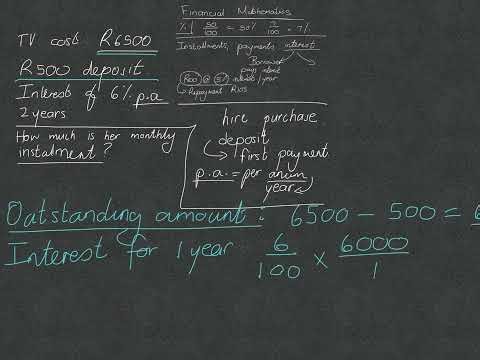 TV cost R6500
R500 deposit
Interest of 6% p.a
2 years
How much is her monthly
instalment?
Financial Mathematics
% | 50/100 = 50% 7/100 = 7%
Installments, payments interest
Borrower
pays about
R100 @ 5% interest / year
Repayment R105
hire purchase
deposit
first payment
p.a. = per anum
year
Oatstanding amount: 6500 - 500 =
Interest for 1 year 6/100 × 6000/1